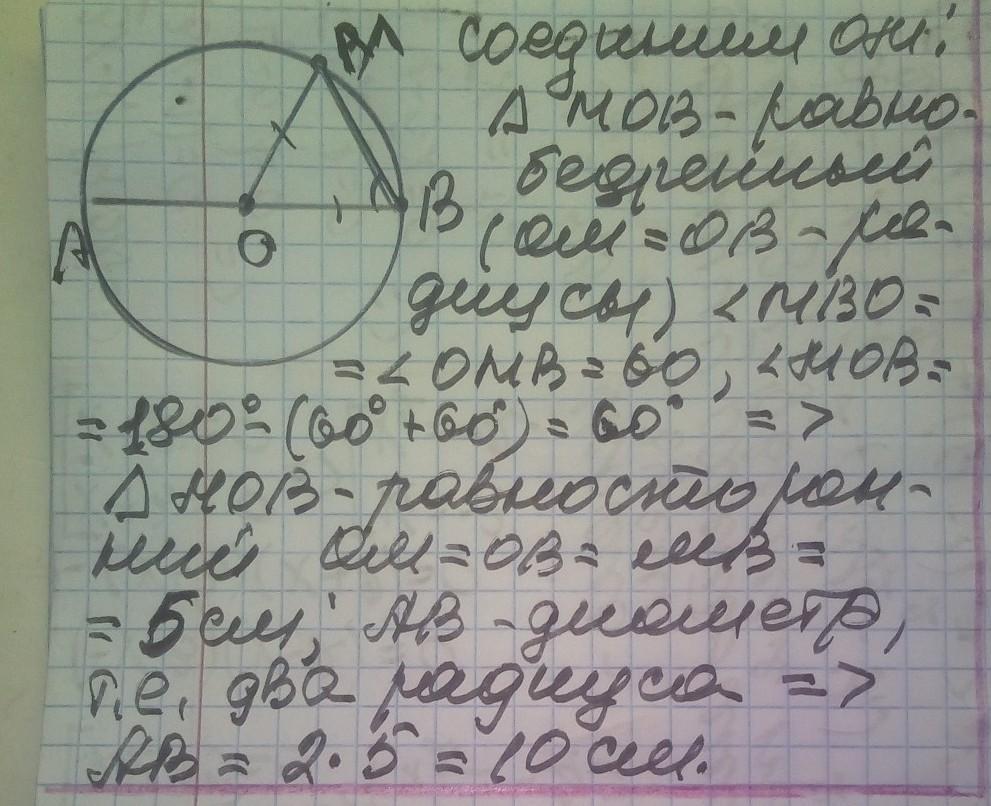 M
Соединим ОМ:
Δ МОВ - равно-
бедренный
В
(ОМ = ОВ - ра-
О
А
диусы) <МВО =
= < ОМВ = 60, <МОВ =
= 180° - (60° + 60°) = 60° =>
Δ МОВ - равносторон-
ний ОМ = ОВ = МВ =
= 5 см; АВ - диаметр,
т.е. два радиуса =>
АВ = 2·5 = 10 см.